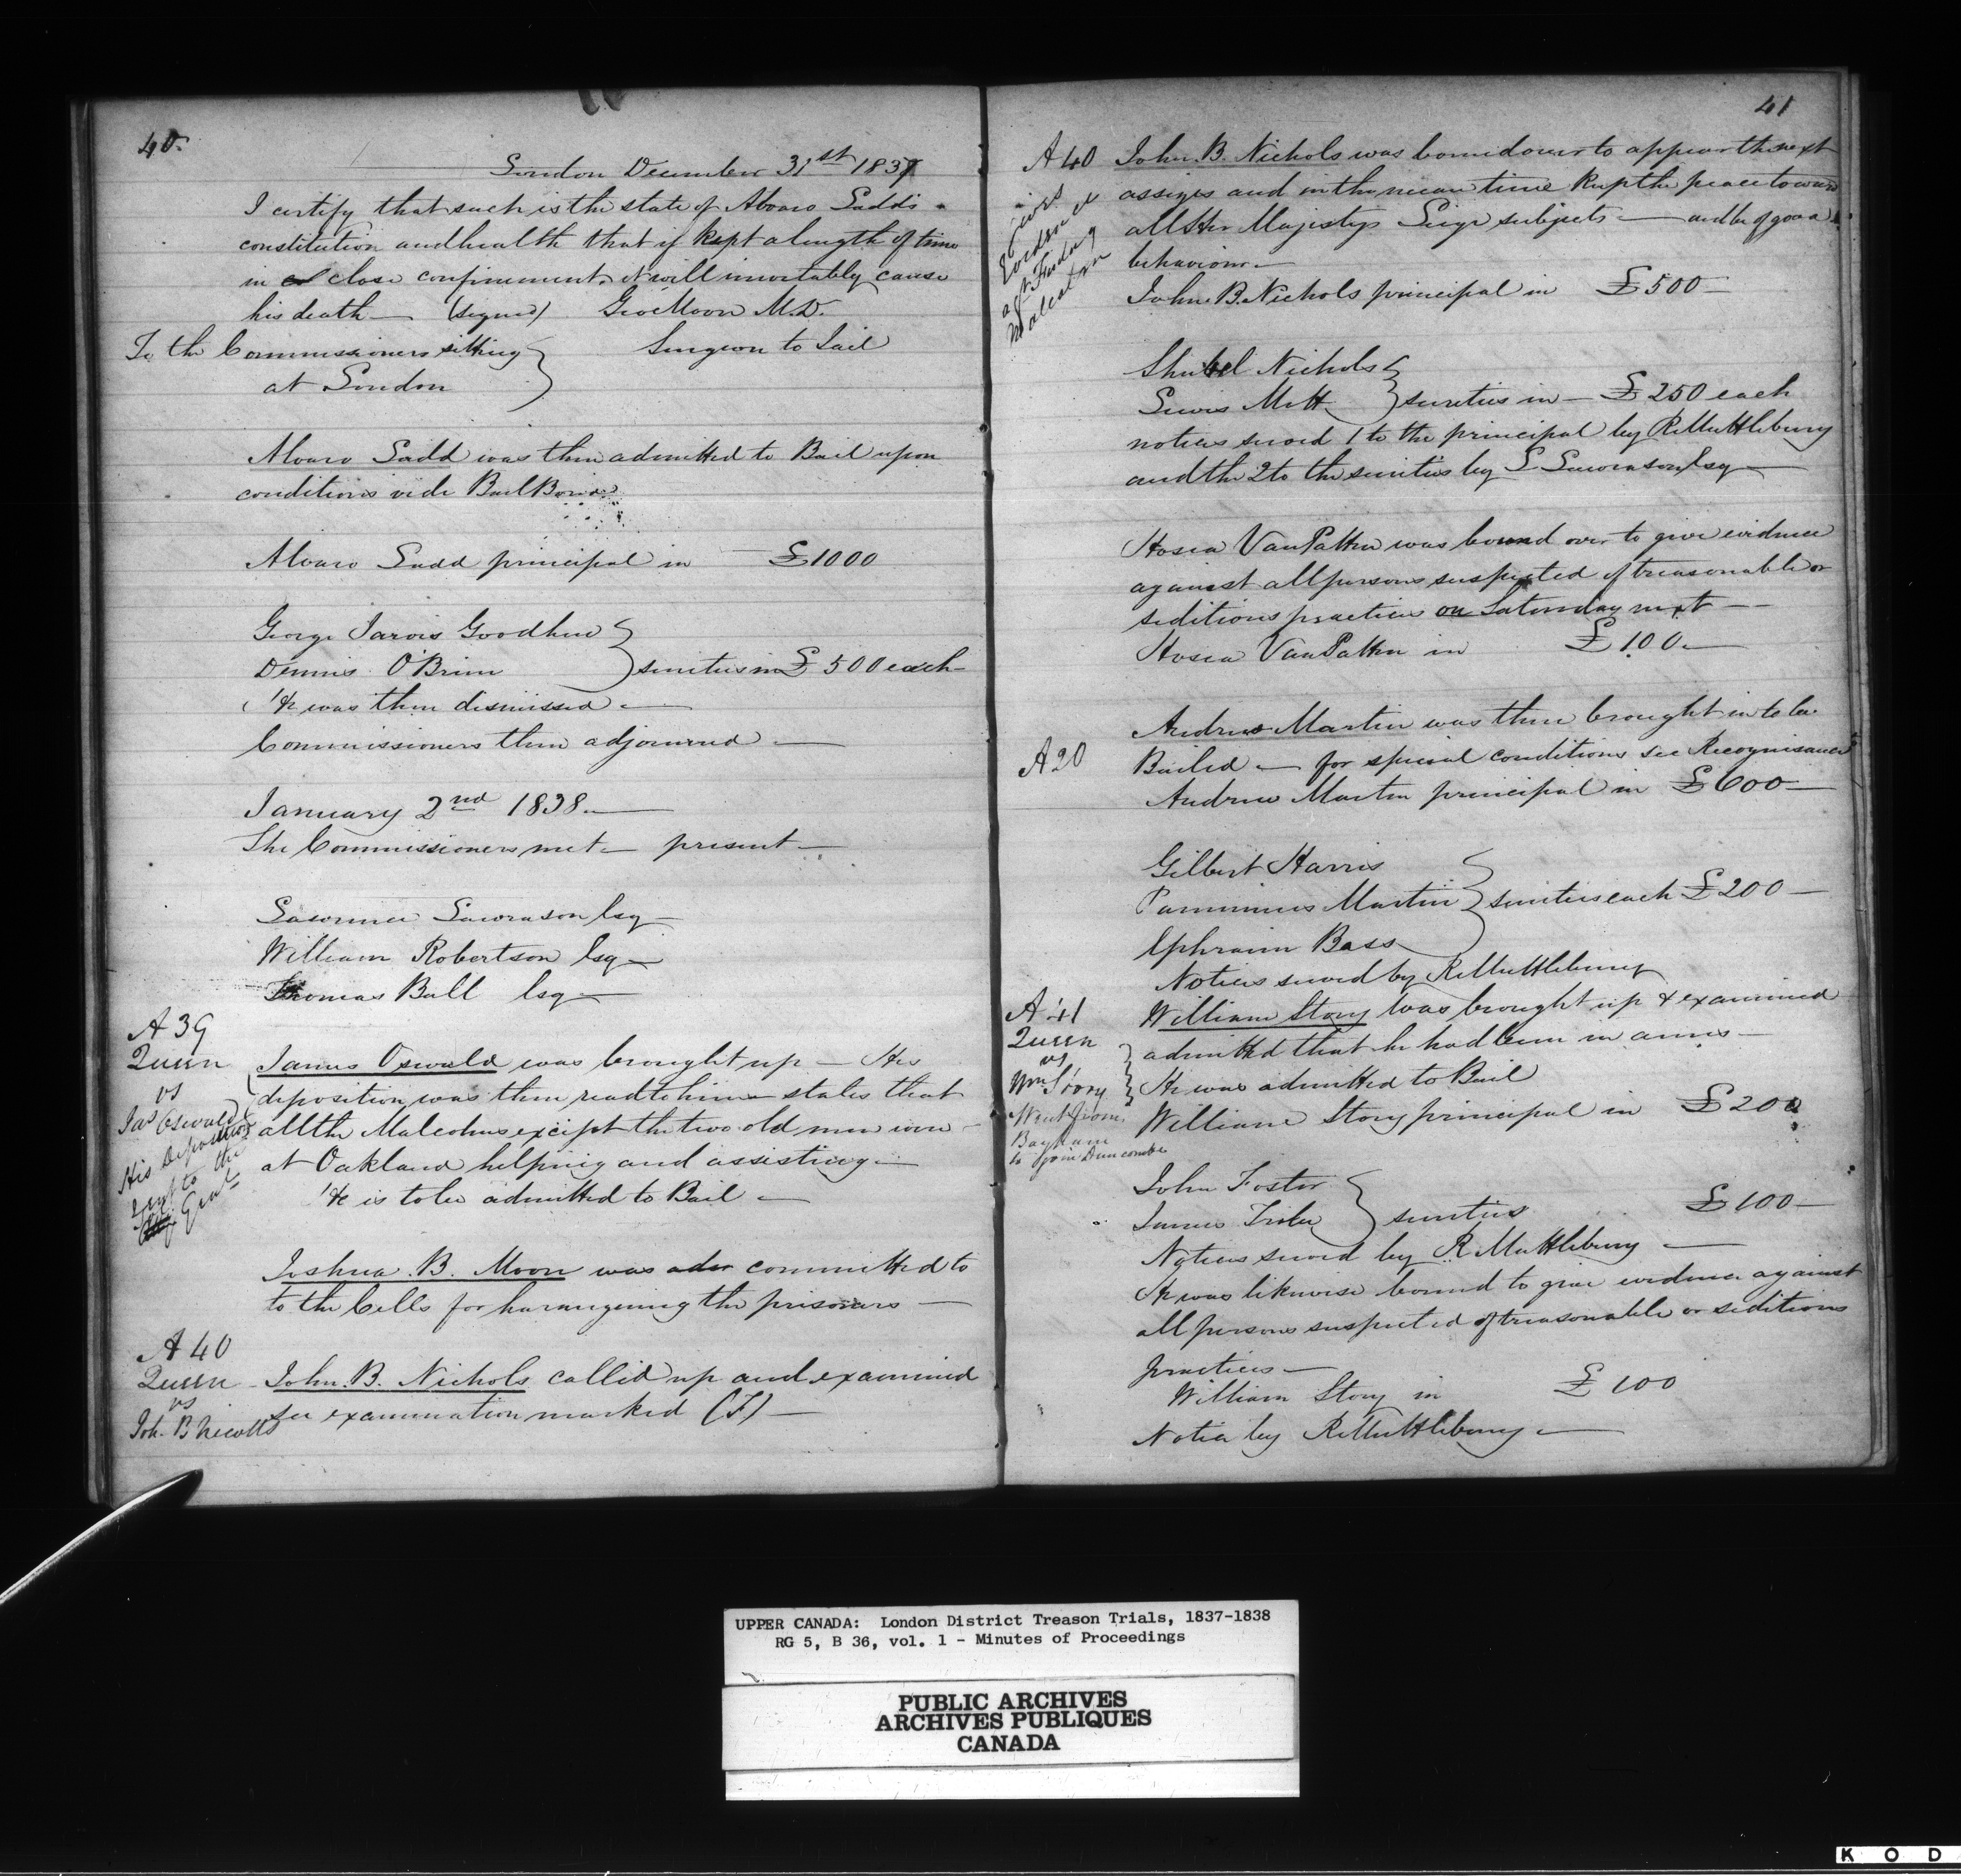 40.
London December 31st 1837
I certify that such is the state of Alvaro Ladd's
constitution and health that if kept a length of time
in close confinement it will inevitably cause
his death — (signed) Geo Moon M.D.
To the Commissioners sitting } Surgeon to Jail
at London
Alvaro Ladd was then admitted to Bail upon
conditions vide Bail Bond
Alvaro Ladd principal in — £1000
George Jarvis Goodhue }
Dennis O'Brien } sureties in £500 each
He was then dismissed —
Commissioners then adjourned —
January 2nd 1838 —
The Commissioners met — present —
Lawrence Lawrason Esq —
William Robertson Esq —
Thomas Ball Esq —
A 39
Queen
vs
Jas Oswald
His Deposition
sent to the
Genl
James Oswald was brought up — His
deposition was then read to him — states that
all the Malcolms except the two old men were
at Oakland helping and assisting —
He is to be admitted to Bail —
Joshua B. Moore was committed to
to the Cells for harangueing the prisoners —
A 40
Queen
vs
Joh. B Nicolls
John. B. Nichols called up and examined
see examination marked (F) —
41
A 40
gives
evidence
agt Finlay
Malcolm
John. B. Nichols was bound over to appear the next
assizes and in the mean time keep the peace toward
all Her Majestys Liege subjects — and be of good
behaviour —
John. B. Nichols principal in £500 —
Shubel Nichols }
Lewis Mott } sureties in — £250 each
notices served 1 to the principal by R Muttlebury
and the 2 to the sureties by L Lawrason Esq —
Hosea VanPatten was bound over to give evidence
against all persons suspected of treasonable or
seditious practices on Saturday next —
Hosea VanPatten in £100 —
A 20
Andrew Martin was then brought in to be
Bailed — for special conditions see Recognisance
Andrew Martin principal in £600 —
Gilbert Harris }
Pamminus Martin } sureties each £200 —
Ephraim Bass
Notices served by R Muttlebury
A 41
Queen
vs
Wm Story
Went from
Bayham
to join Duncombe
William Story was brought up & examined
admitted that he had been in arms —
He was admitted to Bail
William Story principal in £200
John Foster }
James } sureties £100 —
Notices served by R Muttlebury —
He was likewise bound to give evidence against
all persons suspected of treasonable or seditious
practices —
William Story in £100
Notice by R Muttlebury —
UPPER CANADA: London District Treason Trials, 1837-1838
RG 5, B 36, vol. 1 - Minutes of Proceedings
PUBLIC ARCHIVES
ARCHIVES PUBLIQUES
CANADA
K O D